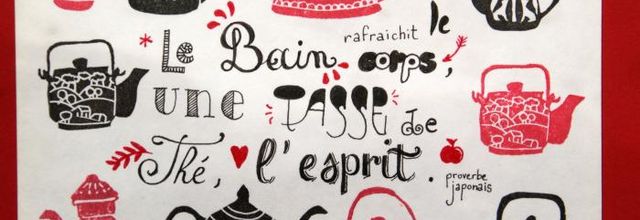 Le Bain rafraichit le corps,
une TASSE de
Thé, l'esprit.
proverbe
japonais